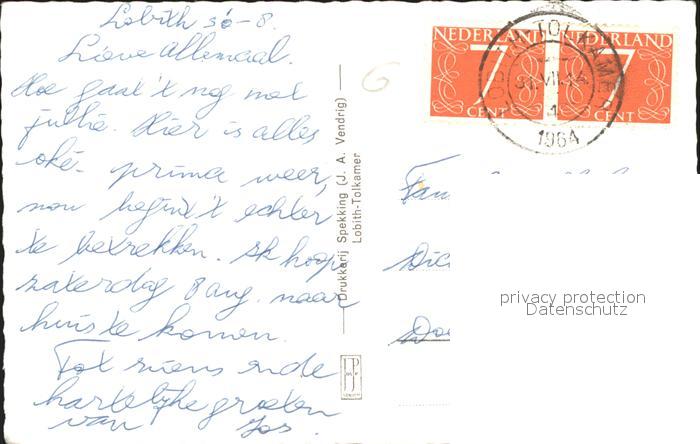 Lobith 30-8.
Lieve Allemaal.
Hoe gaat 't nog met
jullie. Hier is alles
oké. prima weer,
nou begint 't echter
te betrekken. Ik hoop
zaterdag 8 aug. naar
huis te komen.
Tot ziens en de
hartelijke groeten
van Jos.
Drukkerij Spekking (J. A. Vendrig) —
Lobith-Tolkamer
NEDERLAND
7
CENT
NEDERLAND
7
CENT
TOLKAMER
1964
Fam
Dic
privacy protection
Datenschutz